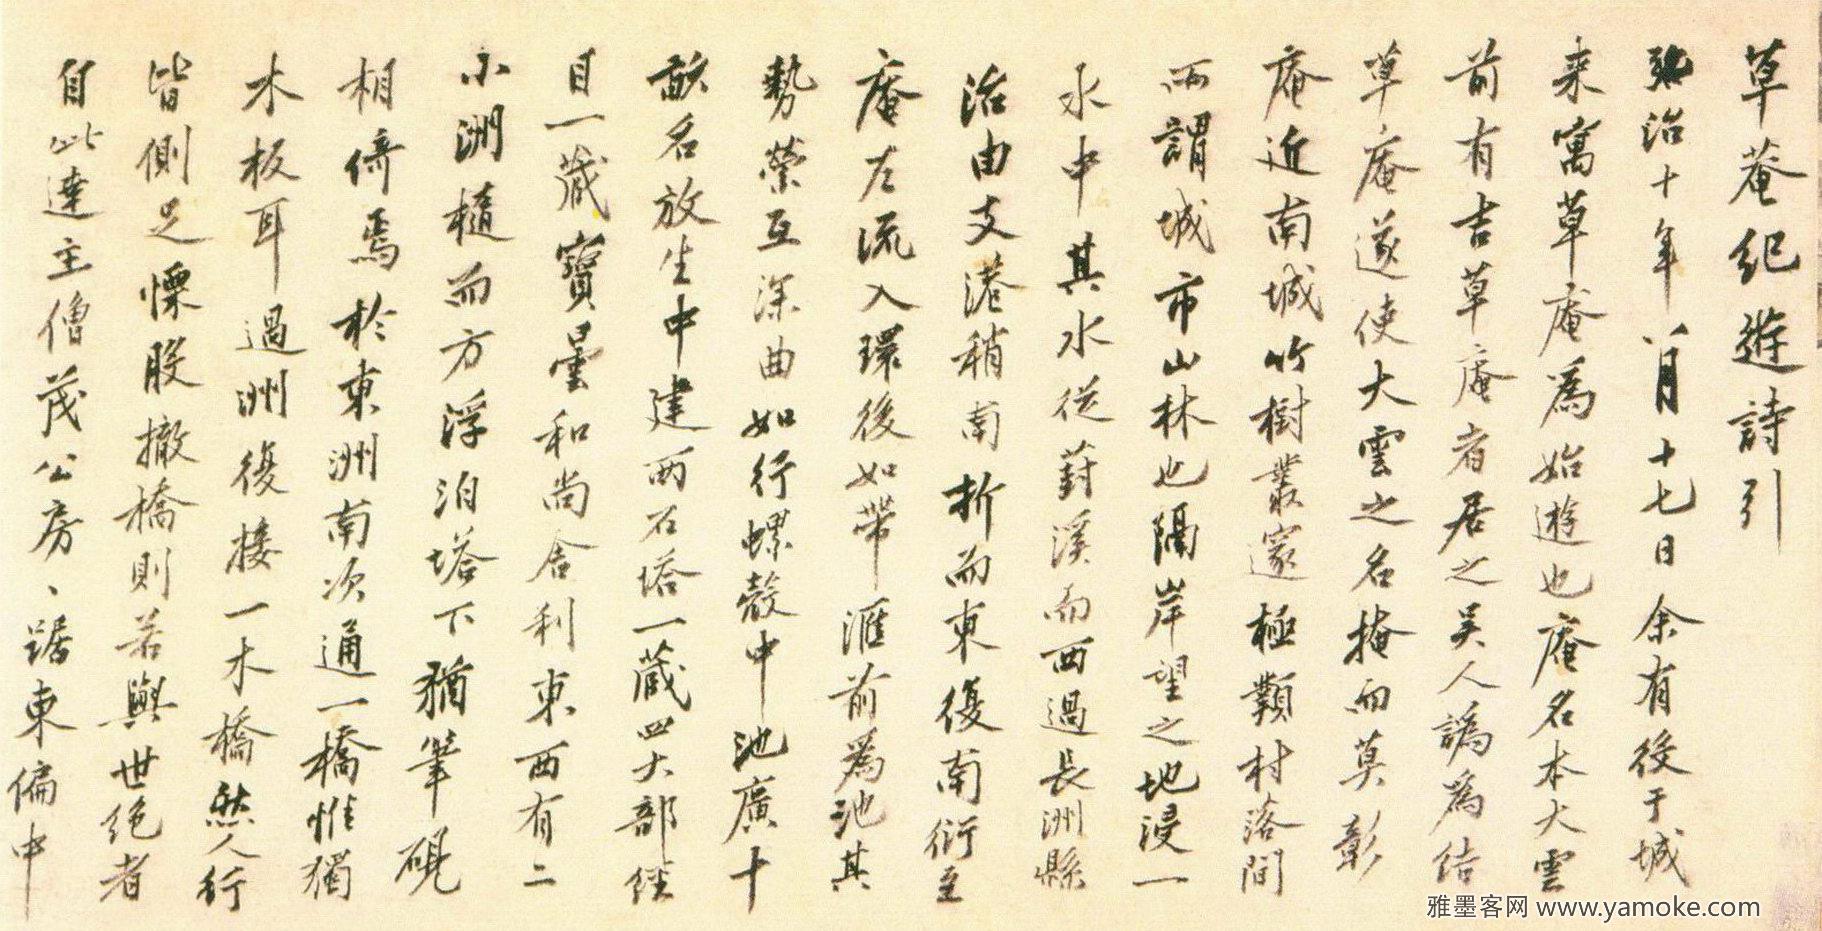 草菴紀遊詩引
弘治十年八月十七日余有役于城
来寓草庵為始遊也庵名本大雲
前有吉草庵者居之吴人譌為结
草庵遂使大雲之名掩而莫彰
庵近南城竹樹叢邃極類村落間
所謂城市山林也隔岸望之地浸一
水中其水從葑溪而西過長洲縣
治由支港稍南折而東復南衍至
庵左流入環後如帶滙前為池其
勢縈互深曲如行螺殼中池廣十
畝名放生中建两石塔一藏四大部经
目一藏寶曇和尚舍利東西有二
小洲橢而方浮泊塔下猶筆硯
相倚焉於東洲南次通一橋惟獨
木板耳過洲復接一木橋然人行
皆側足慄股撤橋則若與世绝者
自此達主僧茂公房、踞東偏中
雅墨客网 www.yamoke.com